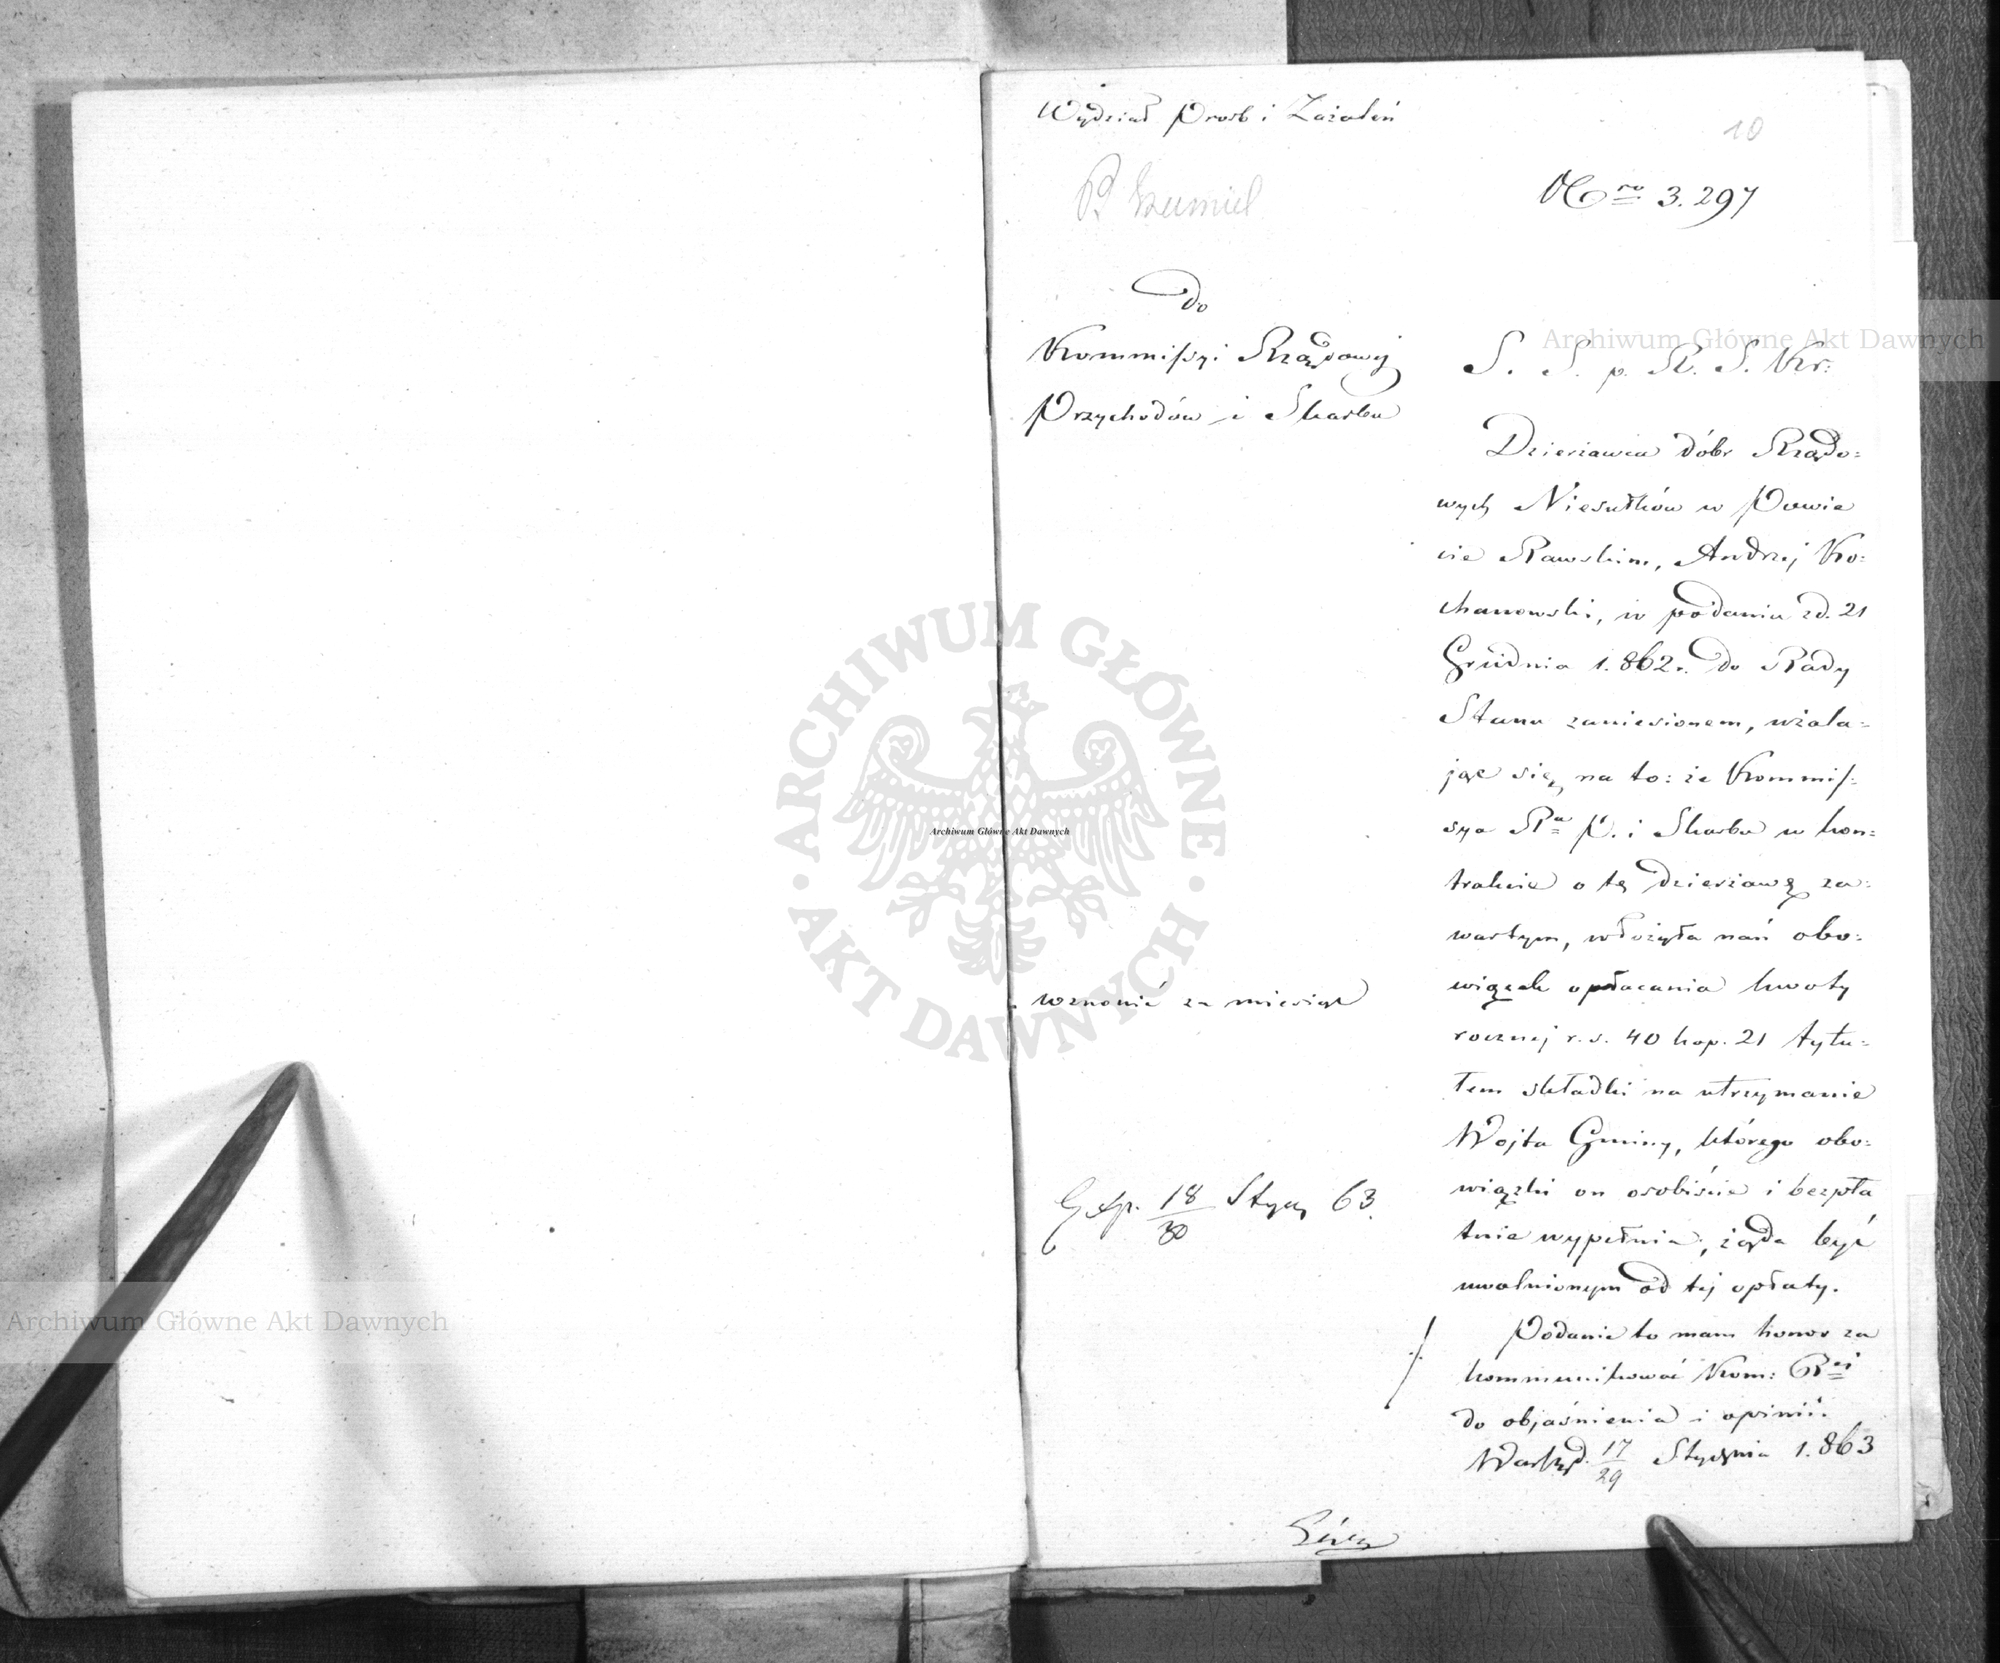 Wydział Prosb i Zażaleń
10
Nro 3.297
do
Kommissyi Rządowéj
Przychodów i Skarbu
S. S. p. R. S. Kr:
Dzierżawca dóbr Rządo:
wych Niesułków w Powie
cie Rawskim, Andrzej Ko:
chanowski, w podaniu z d. 21
Grudnia 1.862 r. do Rady
Stanu zaniesionem, użala:
jąc się na to: że Kommis:
sya Ra P. i Skarbu w kon:
trakcie o tę dzierżawę za:
wartym, włożyła nań obo:
wiązek opłacania kwoty
rocznej r. s. 40 kop. 21 tytu:
łem składki na utrzymanie
Wojta Gminy, którego obo:
wiązki on osobiście i bezpła
tnie wypełnia, żąda być
uwolnionym od tej opłaty.
Podanie to mam honor za
kommunikować Kom: Rei
do objaśnienia i opinii.
Warsz. d. 17/29 Stycznia 1.863
wznowić za miesiąc
Exp. 18/30 Stycz 63.
Archiwum Główne Akt Dawnych
Archiwum Główne Akt Dawnych
Archiwum Główne Akt Dawnych
ARCHIWUM GŁÓWNE
AKT DAWNYCH